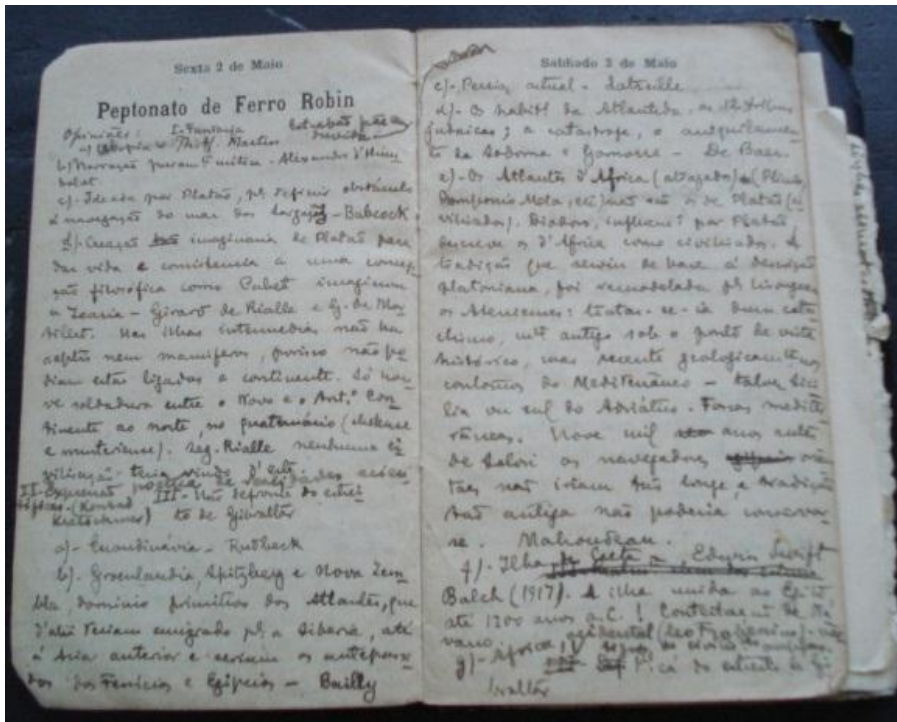 Sexta 2 de Maio
Peptonato de Ferro Robin
Opiniões: I-Fantasia
a) Utopia - Th. H. Martin
b) Narração puramᵉ mítica - Alexandre d'Hum
bolet
c)- Ideada por Platão, pª definir obstáculo
á navegação do mar dos Sargaços - Babcock
d)- Creação imaginaria de Platão para
dar vida e consistencia a uma concep
ção filosófica como Cabet imaginou
a Icaria - Girard de Rialle e G. de Mor
tillet. Nas ilhas intermedias não ha
reptis nem mamiferos, porisso não po
diam estar ligadas a continente. Só hou
ve soldadura entre o Novo e o Ant.º Con
tinente ao norte, no quaternário (chelense
e musteriense). Seg. Rialle nenhuma ci
vilização teria vindo d'este
II-Expressão poética de realidades cientí
ficas- (Konrad Kretschmer)
III- Não defronte do estrei
to de Gibraltar
a)- Escandinávia - Rudbeck
b)- Groenlandia, Spitzberg e Nova Zem
bla, dominio primitivo dos Atlantes, que
d'ahi teriam emigrado pª a Siberia, até
á Asia anterior e seriam os antepassa
dos dos Fenicios e Egipcios - Bailly
Sabbado 3 de Maio
c)- Persia actual - Latreille
d)- Os habitᵗ da Atlantida, as
judaicas; a catastrofe, o aniquilamen
to de Sodoma e Gomorra - De Baer.
e)- Os Atlantes d'Africa (Plinio,
Pomponio Mela, etc) não são os de Platão (ci
vilizados). Diodoro, influenc? por Platão
descreve os d'Africa como civilizados. A
tradição que serviu de base á descrição
platoniana, foi remodelada pª lisongear
os Atenienses: tratar-se-ia dum cata
clismo, mtº antigo sob o ponto de vista
histórico, mas recente geologicamᵗᵉ nos
contornos do Mediterrâneo - talvez Sici
lia ou sul do Adriático. Forças mediter
râneas. Nove mil anos antes
de Solon os navegadores
não iriam tão longe, e tradição
tão antiga não poderia conservar
se. Mahoudeau.
f)- Ilha de Creta - Edwin Swift
Balch (1917). A ilha unida ao Egito
até 1200 anos a.C.! Contestação de
g)- Africa ocidental (Leo Frobenius)
Fica do estreito de Gi
braltar